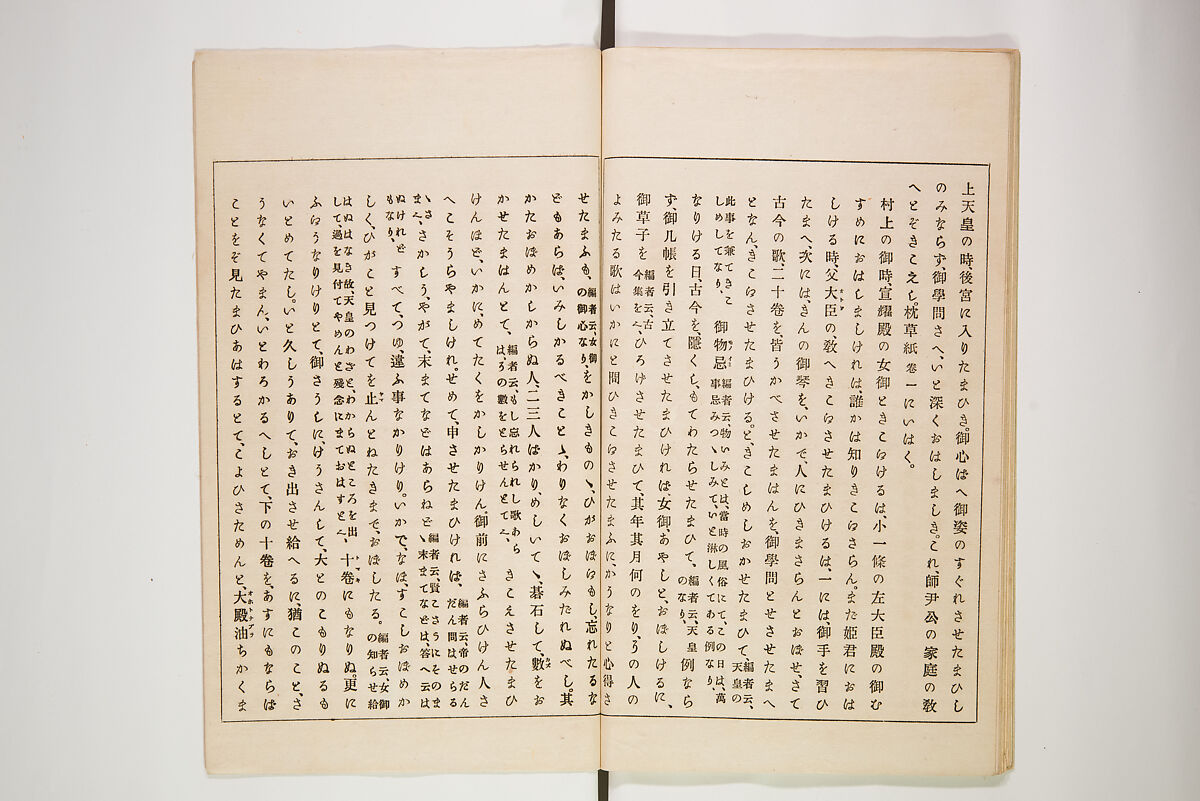 上天皇の時、後宮に入りたまひき。御心ばへ御姿のすぐれさせたまひし
のみならず、御學問さへ、いと深くおはしましき。これ、師尹公の家庭の敎
へとぞきこえし。枕草紙卷一にいはく。
村上の御時、宣耀殿の女御ときこゆけるは、小一條の左大臣殿の御む
すめにおはしましければ、誰かは知りきこゆさらん。まだ姬君におは
しける時、父大臣の、敎へきこゆさせたまひけるは、一には、御手を習ひ
たまへ、次には、きんの御琴を、いかで、人にひきまさらんとおぼせ、さて
古今の歌二十卷を、皆うかべさせたまはんを、御學問とせさせたまへ
となん、きこゆさせたまひける。と、きこしめしおかせたまひて、編者云、天皇の
此事を兼てきこしめしてなり、御物忌編者云、物いみとは、當時の風俗にて、この日は、萬事忌みつゝしみて、いと淋しくてある例なり、
なりける日、古今を、隱くし、もてわたらせたまひて、編者云、天皇のなり、例なら
ず、御几帳を引き立てさせたまひければ、女御、あやしと、おぼしけるに、
御草子を編者云、古今集を云、ひろげさせたまひて、其年其月何のをり、その人の
よみたる歌はいかにと問ひきこゆさせたまふに、かうなりと心得さ
せたまふも、編者云、女御の御心なり、をかしきものゝ、ひがおぼゆもし、忘れたるな
どもあらば、いみしかるべきことゝ、わりなくおぼしみだれぬべし。其
かたおぼめかしからぬ人、二三人ばかり、めしいでゝ、碁石して、數をお
かせたまはんとて、編者云、もし忘れられし歌あらは、その數をとらせんとて云、きこえさせたまひ
けんほど、いかに、めでたくをかしかりけん。御前にさふらひけん人さ
へこそうらやましけれ。せめて、申させたまひければ、編者云、帝のだんだん問はせらるゝさま云、
さかしう、やがて、末まてなどはあらねど編者云、賢こさうにそのまゝ末まてなどは、答へ云はぬけれど
もなり、すべて、つゆ、違ふ事なかりけり。いかで、なほ、すこしおぼめか
しく、ひがこと見つけてを止んとねたきまでおぼしたる。編者云、女御の知らせ給
はぬはなき故、天皇のわざと、わからぬところを出して過を見付てやめんと殘念にまておはすと云、十卷にもなりぬ。更に
ふゆうなりけりとて、御さうしに、けうさんして、大とのこもりぬるも
いとめでたし。いと久しうありて、おき出させ給へるに、猶このこと、さ
うなくてやまん、いとわろかるへしとて、下の十卷を、あすにもならば
ことをぞ見たまひあはするとて、こよひさためんと、大殿油ちかくま